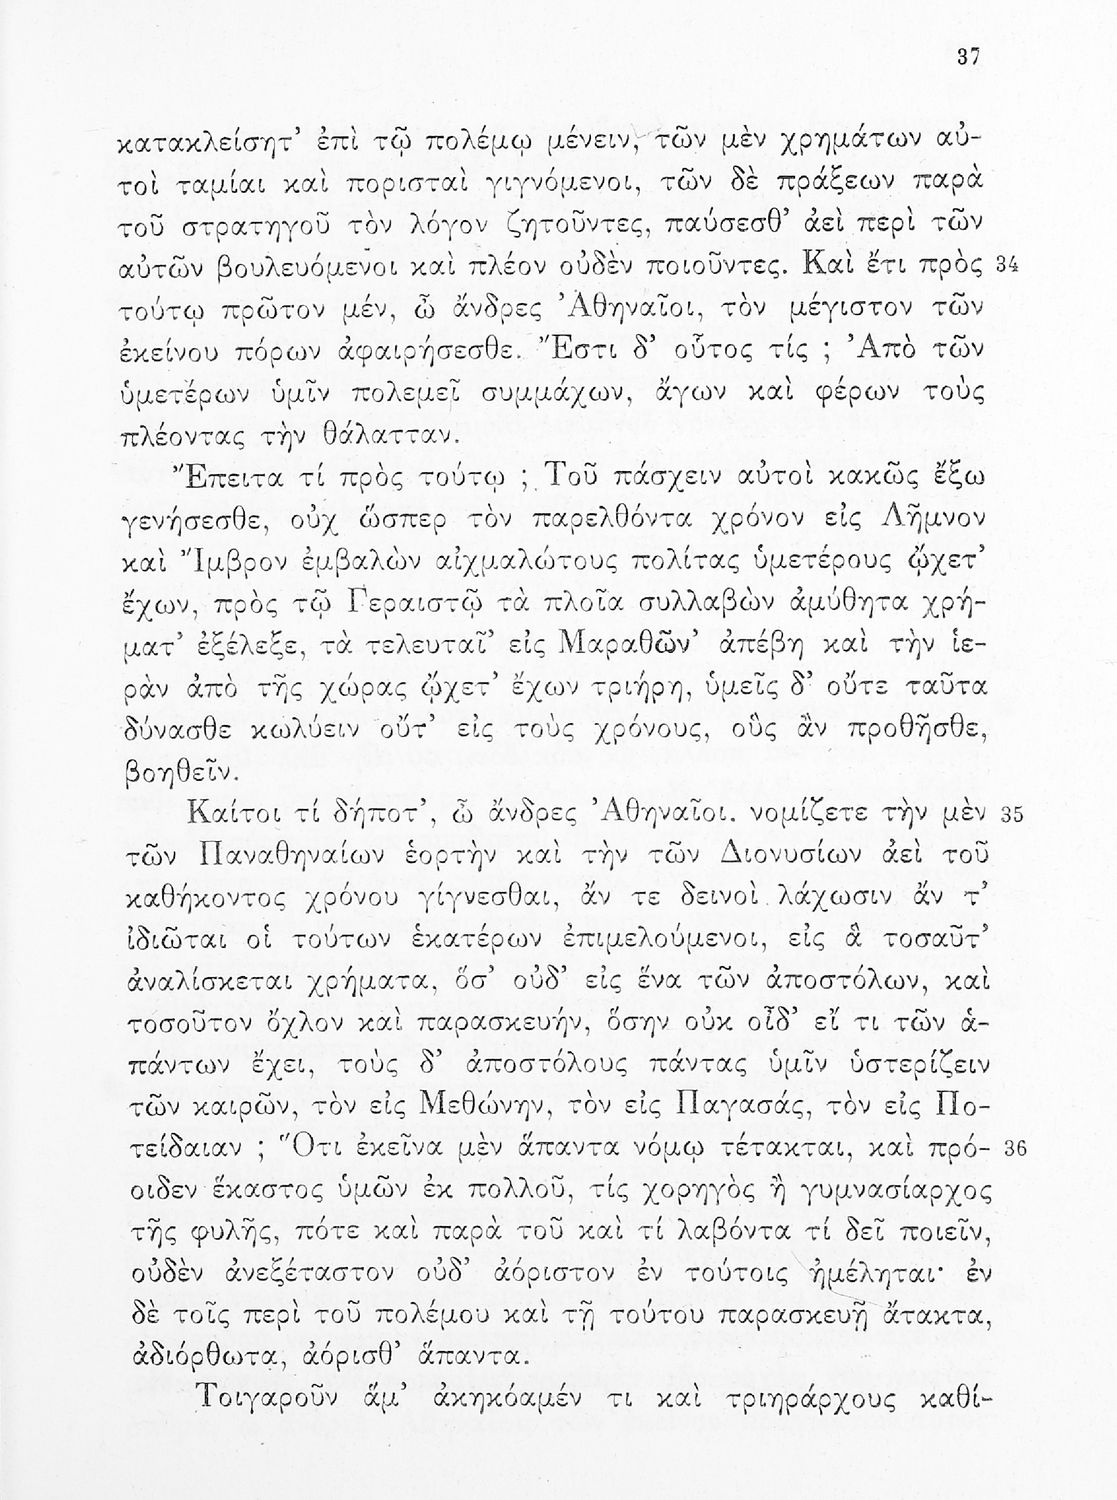 37
κατακλείσητ’ ἐπὶ τῷ πολέμῳ μένειν, τῶν μὲν χρημάτων αὐ-
τοὶ ταμίαι καὶ πορισταὶ γιγνόμενοι, τῶν δὲ πράξεων παρὰ
τοῦ στρατηγοῦ τὸν λόγον ζητοῦντες, παύσεσθ’ ἀεὶ περὶ τῶν
αὐτῶν βουλευόμενοι καὶ πλέον οὐδὲν ποιοῦντες. Καὶ ἔτι πρὸς 34
τούτῳ πρῶτον μέν, ὦ ἄνδρες Ἀθηναῖοι, τὸν μέγιστον τῶν
ἐκείνου πόρων ἀφαιρήσεσθε. Ἔστι δ’ οὗτος τίς ; Ἀπὸ τῶν
ὑμετέρων ὑμῖν πολεμεῖ συμμάχων, ἄγων καὶ φέρων τοὺς
πλέοντας τὴν θάλατταν.
Ἔπειτα τί πρὸς τούτῳ ; Τοῦ πάσχειν αὐτοὶ κακῶς ἔξω
γενήσεσθε, οὐχ ὥσπερ τὸν παρελθόντα χρόνον εἰς Λῆμνον
καὶ Ἴμβρον ἐμβαλὼν αἰχμαλώτους πολίτας ὑμετέρους ᾤχετ’
ἔχων, πρὸς τῷ Γεραιστῷ τὰ πλοῖα συλλαβὼν ἀμύθητα χρή-
ματ’ ἐξέλεξε, τὰ τελευταῖ’ εἰς Μαραθῶν’ ἀπέβη καὶ τὴν ἱε-
ρὰν ἀπὸ τῆς χώρας ᾤχετ’ ἔχων τριήρη, ὑμεῖς δ’ οὔτε ταῦτα
δύνασθε κωλύειν οὔτ’ εἰς τοὺς χρόνους, οὓς ἂν προθῆσθε,
βοηθεῖν.
Καίτοι τί δήποτ’, ὦ ἄνδρες Ἀθηναῖοι. νομίζετε τὴν μὲν 35
τῶν Παναθηναίων ἑορτὴν καὶ τὴν τῶν Διονυσίων ἀεὶ τοῦ
καθήκοντος χρόνου γίγνεσθαι, ἄν τε δεινοὶ λάχωσιν ἄν τ’
ἰδιῶται οἱ τούτων ἑκατέρων ἐπιμελούμενοι, εἰς ἃ τοσαῦτ’
ἀναλίσκεται χρήματα, ὅσ’ οὐδ’ εἰς ἕνα τῶν ἀποστόλων, καὶ
τοσοῦτον ὄχλον καὶ παρασκευήν, ὅσην οὐκ οἶδ’ εἴ τι τῶν ἁ-
πάντων ἔχει, τοὺς δ’ ἀποστόλους πάντας ὑμῖν ὑστερίζειν
τῶν καιρῶν, τὸν εἰς Μεθώνην, τὸν εἰς Παγασάς, τὸν εἰς Πο-
τείδαιαν ; Ὅτι ἐκεῖνα μὲν ἅπαντα νόμῳ τέτακται, καὶ πρό- 36
οιδεν ἕκαστος ὑμῶν ἐκ πολλοῦ, τίς χορηγὸς ἢ γυμνασίαρχος
τῆς φυλῆς, πότε καὶ παρὰ τοῦ καὶ τί λαβόντα τί δεῖ ποιεῖν,
οὐδὲν ἀνεξέταστον οὐδ’ ἀόριστον ἐν τούτοις ἠμέληται· ἐν
δὲ τοῖς περὶ τοῦ πολέμου καὶ τῇ τούτου παρασκευῇ ἄτακτα,
ἀδιόρθωτα, ἀόρισθ’ ἅπαντα.
Τοιγαροῦν ἅμ’ ἀκηκόαμέν τι καὶ τριηράρχους καθί-